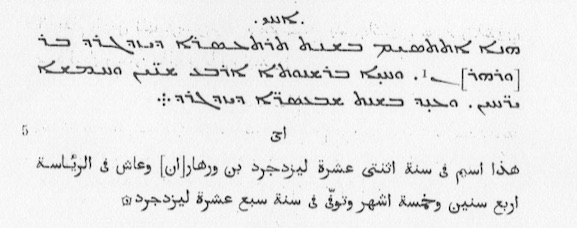 .ܐܚܝ.
ܗܢܐ ܐܬܬܣܝܡ ܒܫܢܬ ܬܪܬܥܣܪ̈ܐ ܕܝܙܕܓܪܕ ܒܪ
ܘܚܝܐ ܒܪܝܫܢܘܬܐ ܐܪܒܥ ܫܢܝ̈ܢ ܘܚܡܫܐ
ܝܪ̈ܚܝܢ. ܘܥܢܕ ܒܫܢܬ ܫܒܥܣܪ̈ܐ ܕܝܙܕܓܪܕ܀
احى
5
هذا اسيم فى سنة اثنتى عشرة ليزدجرد بن ورهار[ان] وعاش فى الرئاسة
اربع سنين وخمسة اشهر وتوفّى فى سنة سبع عشرة ليزدجرد